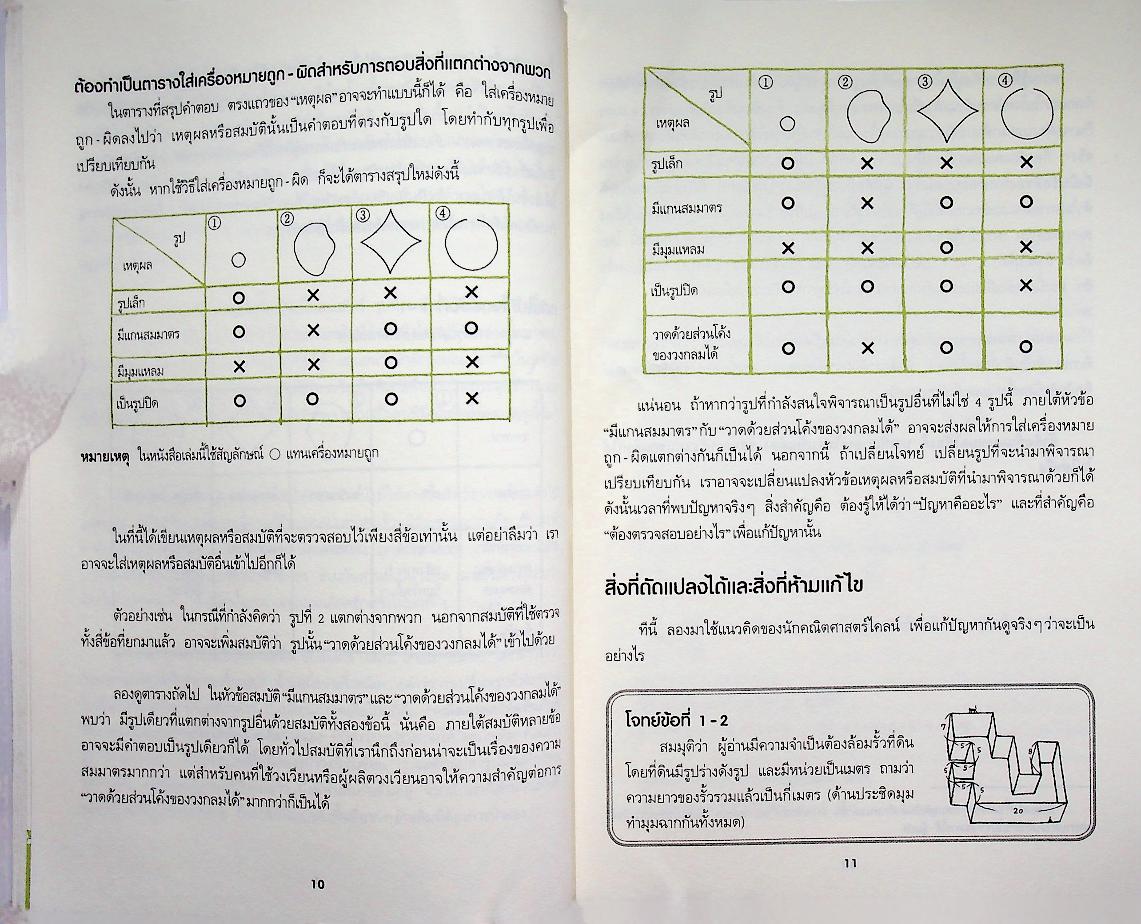 ต้องทำเป็นตารางใส่เครื่องหมายถูก - ผิดสำหรับการตอบสิ่งที่แตกต่างจากพวก
ในตารางที่สรุปคำตอบ ตรงแถวของ “เหตุผล” อาจจะทำแบบนี้ก็ได้ คือ ใส่เครื่องหมาย
ถูก - ผิดลงไปว่า เหตุผลหรือสมบัตินั้นเป็นคำตอบที่ตรงกับรูปใด โดยทำกับทุกรูปเพื่อ
เปรียบเทียบกัน
ดังนั้น หากใช้วิธีใส่เครื่องหมายถูก - ผิด ก็จะได้ตารางสรุปใหม่ดังนี้
รูป ① ② ③ ④
เหตุผล
รูปเล็ก O × × ×
มีแกนสมมาตร O × O O
มีมุมแหลม × × O ×
เป็นรูปปิด O O O ×
หมายเหตุ ในหนังสือเล่มนี้ใช้สัญลักษณ์ ○ แทนเครื่องหมายถูก
ในที่นี้ได้เขียนเหตุผลหรือสมบัติที่จะตรวจสอบไว้เพียงสี่ข้อเท่านั้น แต่อย่าลืมว่า เรา
อาจจะใส่เหตุผลหรือสมบัติอื่นเข้าไปอีกก็ได้
ตัวอย่างเช่น ในกรณีที่กำลังคิดว่า รูปที่ 2 แตกต่างจากพวก นอกจากสมบัติที่ใช้ตรวจ
ทั้งสี่ข้อที่ยกมาแล้ว อาจจะเพิ่มสมบัติว่า รูปนั้น “วาดด้วยส่วนโค้งของวงกลมได้” เข้าไปด้วย
ลองดูตารางถัดไป ในหัวข้อสมบัติ “มีแกนสมมาตร” และ “วาดด้วยส่วนโค้งของวงกลมได้”
พบว่า มีรูปเดียวที่แตกต่างจากรูปอื่นด้วยสมบัติทั้งสองข้อนี้ นั่นคือ ภายใต้สมบัติหลายข้อ
อาจจะมีคำตอบเป็นรูปเดียวก็ได้ โดยทั่วไปสมบัติที่เรานึกถึงก่อนน่าจะเป็นเรื่องของความ
สมมาตรมากกว่า แต่สำหรับคนที่ใช้วงเวียนหรือผู้ผลิตวงเวียนอาจให้ความสำคัญต่อการ
“วาดด้วยส่วนโค้งของวงกลมได้” มากกว่าก็เป็นได้
10
รูป ① ② ③ ④
เหตุผล
รูปเล็ก O × × ×
มีแกนสมมาตร O × O O
มีมุมแหลม × × O ×
เป็นรูปปิด O O O ×
วาดด้วยส่วนโค้ง
ของวงกลมได้ O × O O
แน่นอน ถ้าหากว่ารูปที่กำลังสนใจพิจารณาเป็นรูปอื่นที่ไม่ใช่ 4 รูปนี้ ภายใต้หัวข้อ
“มีแกนสมมาตร” กับ “วาดด้วยส่วนโค้งของวงกลมได้” อาจจะส่งผลให้การใส่เครื่องหมาย
ถูก - ผิดแตกต่างกันก็เป็นได้ นอกจากนี้ ถ้าเปลี่ยนโจทย์ เปลี่ยนรูปที่จะนำมาพิจารณา
เปรียบเทียบกัน เราอาจจะเปลี่ยนแปลงหัวข้อเหตุผลหรือสมบัติที่นำมาพิจารณาด้วยก็ได้
ดังนั้นเวลาที่พบปัญหาจริงๆ สิ่งสำคัญคือ ต้องรู้ให้ได้ว่า “ปัญหาคืออะไร” และที่สำคัญคือ
“ต้องตรวจสอบอย่างไร” เพื่อแก้ปัญหานั้น
สิ่งที่ดัดแปลงได้และสิ่งที่ห้ามแก้ไข
ทีนี้ ลองมาใช้แนวคิดของนักคณิตศาสตร์ไคลน์ เพื่อแก้ปัญหากันดูจริงๆ ว่าจะเป็น
อย่างไร
โจทย์ข้อที่ 1 - 2
สมมุติว่า ผู้อ่านมีความจำเป็นต้องล้อมรั้วที่ดิน
โดยที่ดินมีรูปร่างดังรูป และมีหน่วยเป็นเมตร ถามว่า
ความยาวของรั้วรวมแล้วเป็นกี่เมตร (ด้านประชิดมุม
ทำมุมฉากกันทั้งหมด)
7
5
5
5
5
5
5
20
11